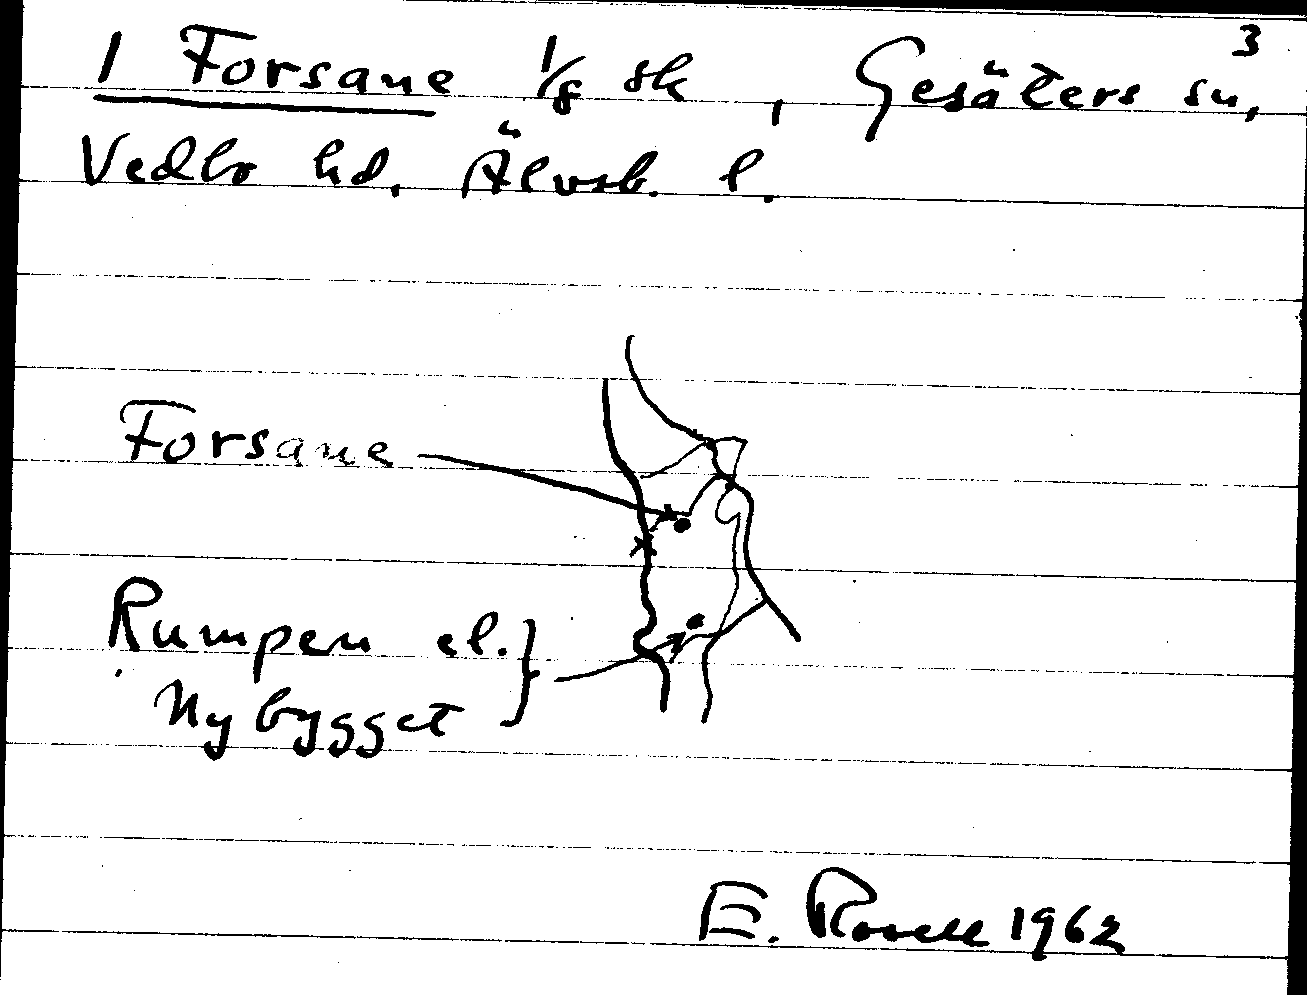 3
1 Forsane 1/8 sk, Gesäters sn,
Vedbo hd, Älvsb. l.
Forsane
Rumpen el.
Nybygget
E. Rosell 1962